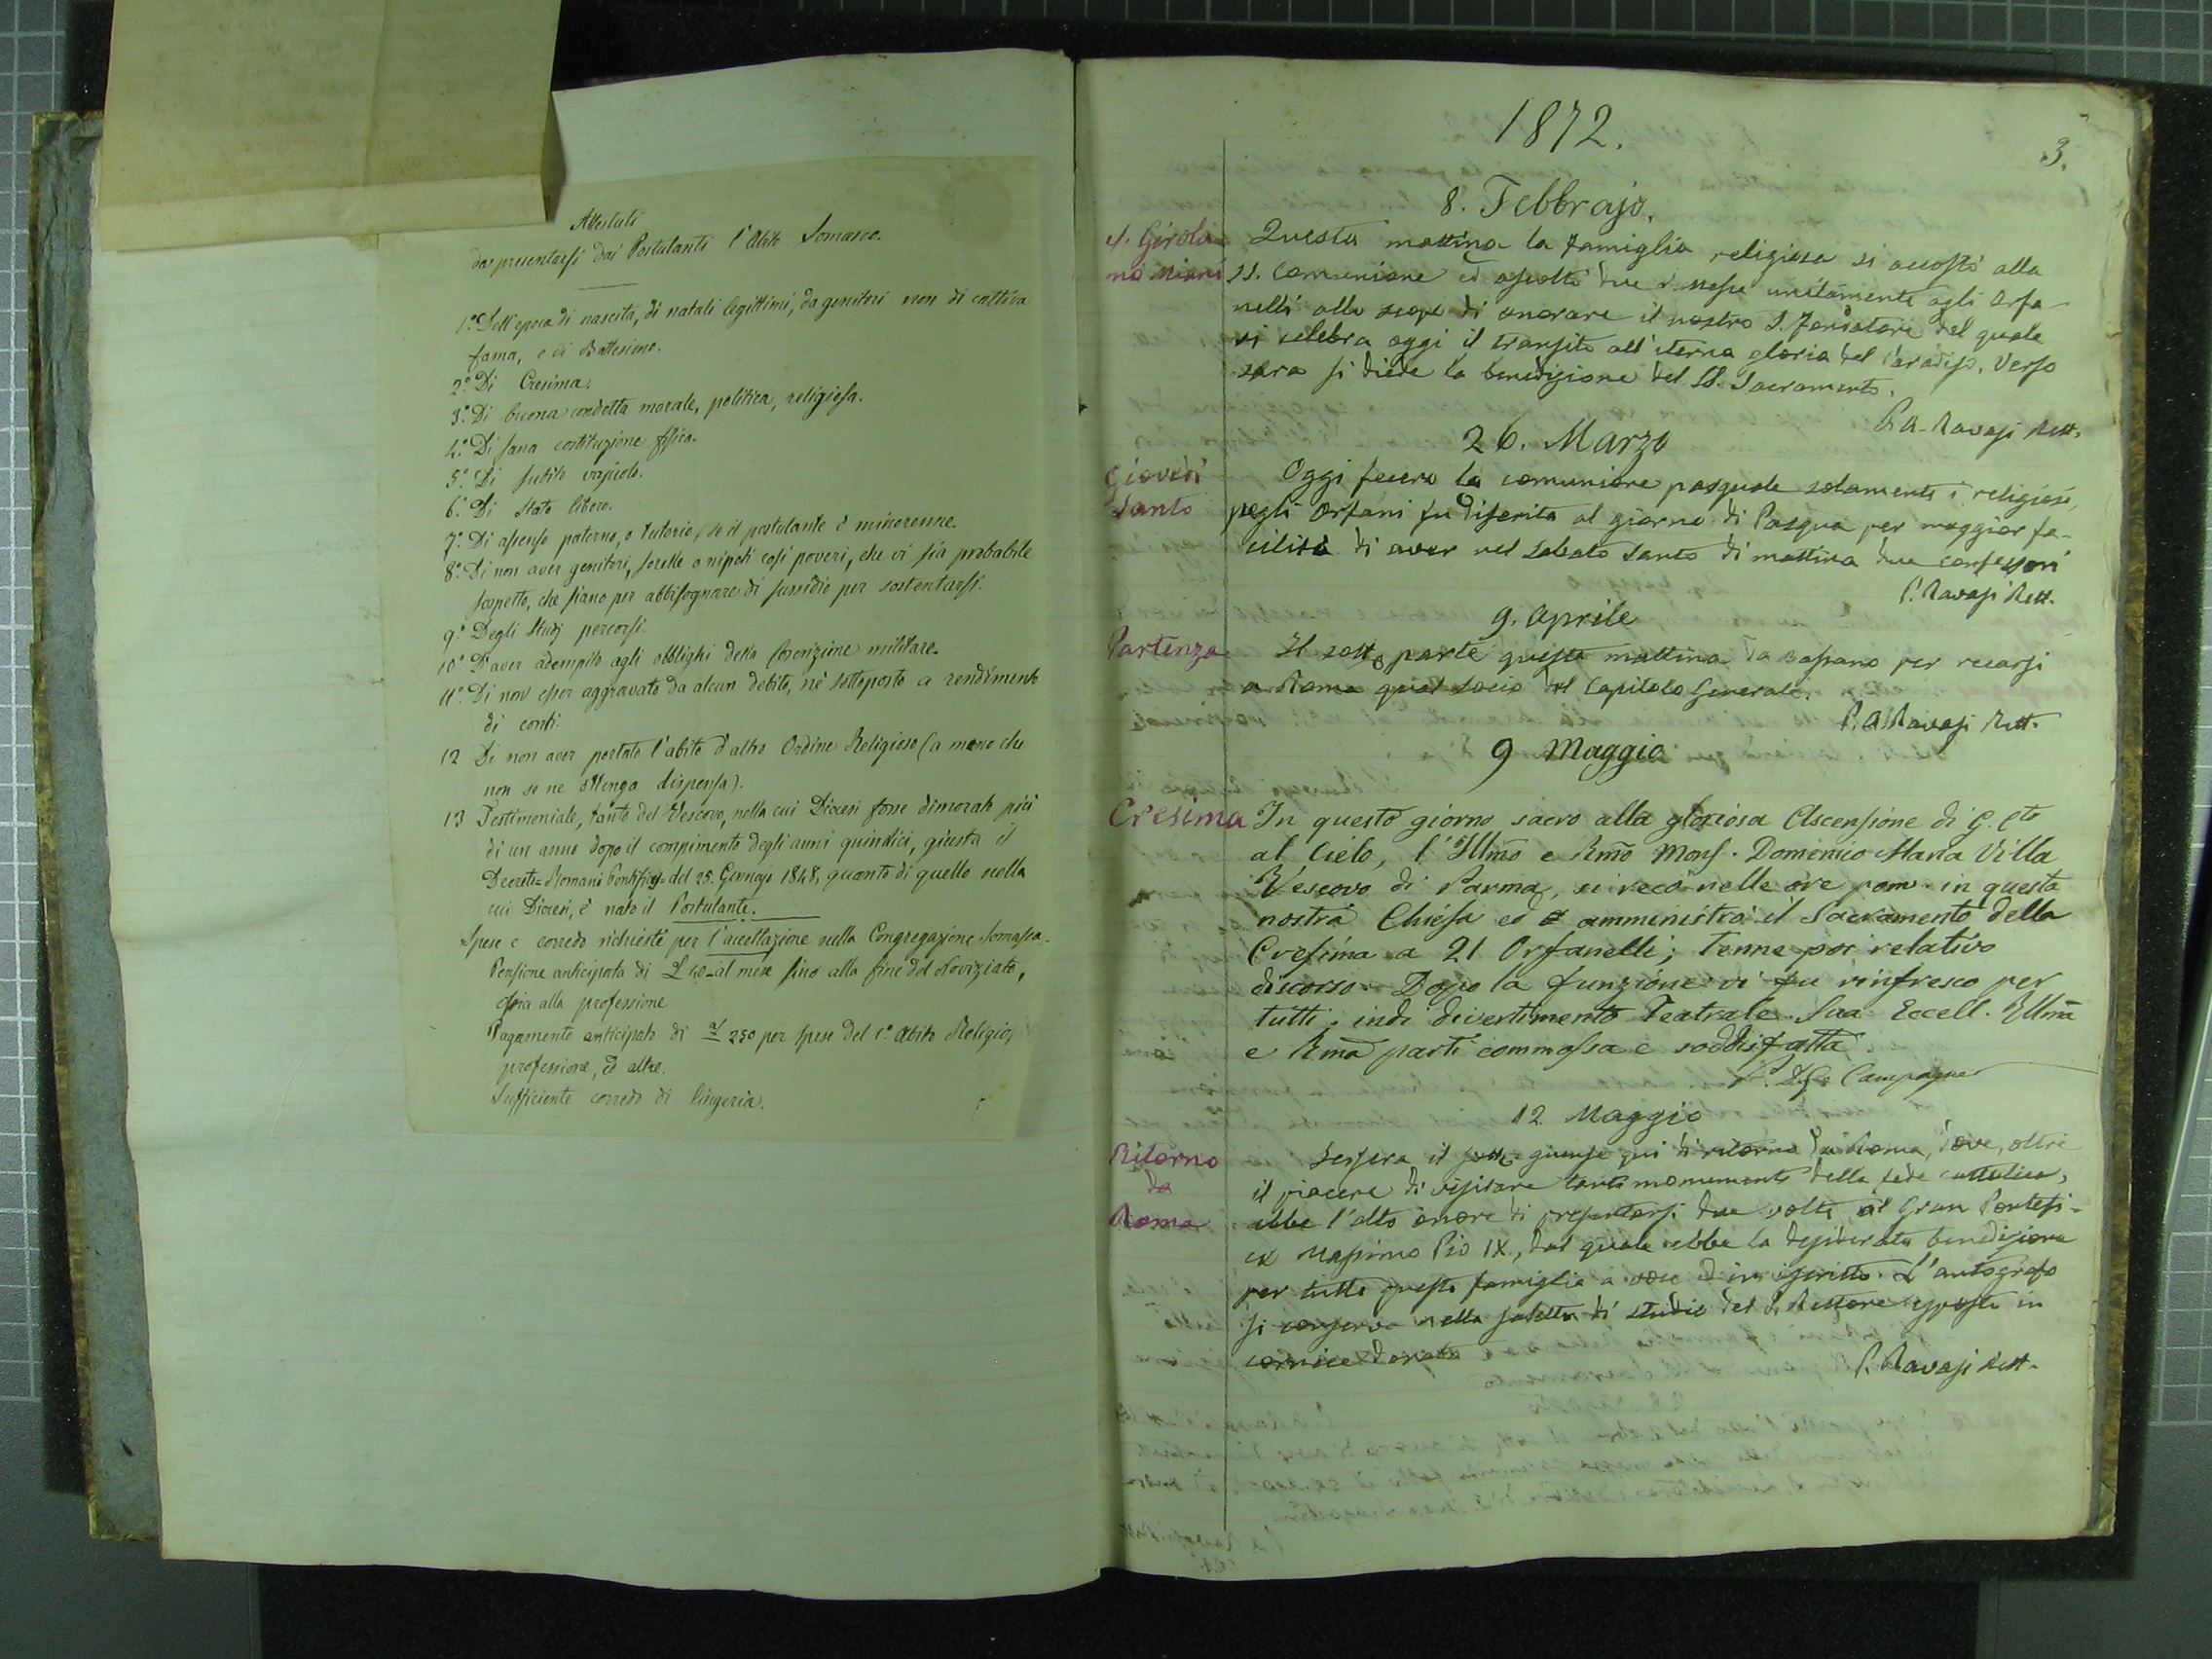 Attestati
da presentarsi dai Postulanti l'Abito Somasco.
1.° Dell'epoca di nascita, di natali legittimi, da genitori non di cattiva
fama, e di Battesimo.
2.° Di Cresima.
3.° Di buona condotta morale, politica, religiosa.
4.° Di sana costituzione fisica.
5.° Di subito vajuolo.
6.° Di stato libero.
7.° Di assenso paterno, o tutorio, se il postulante è minorenne.
8.° Di non aver genitori, sorelle o nipoti così poveri, che vi sia probabile
sospetto, che siano per abbisognare di sussidio per sostentarsi.
9.° Degli Studj percorsi.
10.° D'aver adempito agli obblighi della Coscrizione militare.
11.° Di non esser aggravato da alcun debito, nè sottoposto a rendimento
di conti.
12 Di non aver portato l'abito d'altro Ordine Religioso (a meno che
non se ne ottenga dispensa).
13 Testimoniale, tanto del Vescovo, nella cui Diocesi fosse dimorato più
di un anno dopo il compimento degli anni quindici, giusta il
Decreto = Romani Pontifices = del 25. Gennajo 1848, quanto di quello nella
cui Diocesi, è nato il Postulante.
Spese e corredo richieste per l'accettazione nella Congregazione Somasca.
Pensione anticipata di L 40 al mese fino alla fine del Noviziato,
ossia alla professione
Pagamento anticipato di L 250 per spese del 1.° Abito Religio,
professione, ed altre.
Sufficiente corredo di lingeria.
1872.
3.
8. Febbrajo.
S. Girola-
mo Miani
Questa mattina la famiglia religiosa si accostò alla
SS. Comunione ed ascoltò due s. Messe unitamente agli Orfa-
nelli allo scopo di onorare il nostro S. Fondatore del quale
si celebra oggi il transito all'eterna gloria del Paradiso. Verso
sera si diede la benedizione del SS. Sacramento.
P. A. Ravasi Rett.
26. Marzo
Giovedì
Santo
Oggi fecero la comunione pasquale solamente i religiosi,
pegli Orfani fu diferita al giorno di Pasqua per maggior fa-
cilità di aver nel Sabato Santo di mattina due confessori
P. Ravasi Rett.
9. Aprile
Partenza
Il sott.o parte questa mattina da Bassano per recarsi
a Roma qual Socio del Capitolo Generale.
P. A. Ravasi Rett.
9 Maggio
Cresima
In questo giorno sacro alla gloriosa Ascensione di G. Cto
al Cielo, l'Illmo e Rmo Mons. Domenico Maria Villa
Vescovo di Parma, si recò nelle ore pom. in questa
nostra Chiesa ed amministrò il Sacramento della
Cresima a 21 Orfanelli; tenne poi relativo
discorso. Dopo la funzione vi fu rinfresco per
tutti, indi divertimento Teatrale. Sua Eccell. Illma
e Rma partì commossa e soddisfatta
Campagner
12. Maggio
Ritorno
da
Roma
Jersera il sott.o giunse qui di ritorno da Roma, dove, oltre
il piacere di visitare tanti monumenti della fede cattolica,
ebbe l'alto onore di presentarsi due volte al Gran Pontefi-
ce Massimo Pio IX, dal quale ebbe la desiderata benedizione
per tutta questa famiglia a voce ed in iscritto. L'autografo
si conserva nella saletta di studio del P. Rettore esposto in
cornice dorata
P. Ravasi Rett.